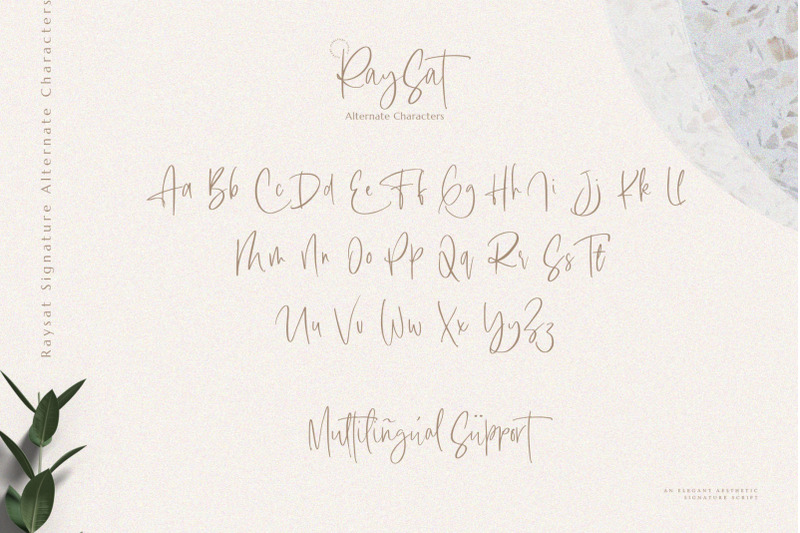 Raysat Signature Alternate Characters
RaySat
Alternate Characters
Aa Bb Cc Dd Ee Ff Gg Hh Ii Jj Kk Ll
Mm Nn Oo Pp Qq Rr Ss Tt
Uu Vv Ww Xx Yy Zz
Multiliñgúal Süpport
AN ELEGANT AESTHETIC
SIGNATURE SCRIPT